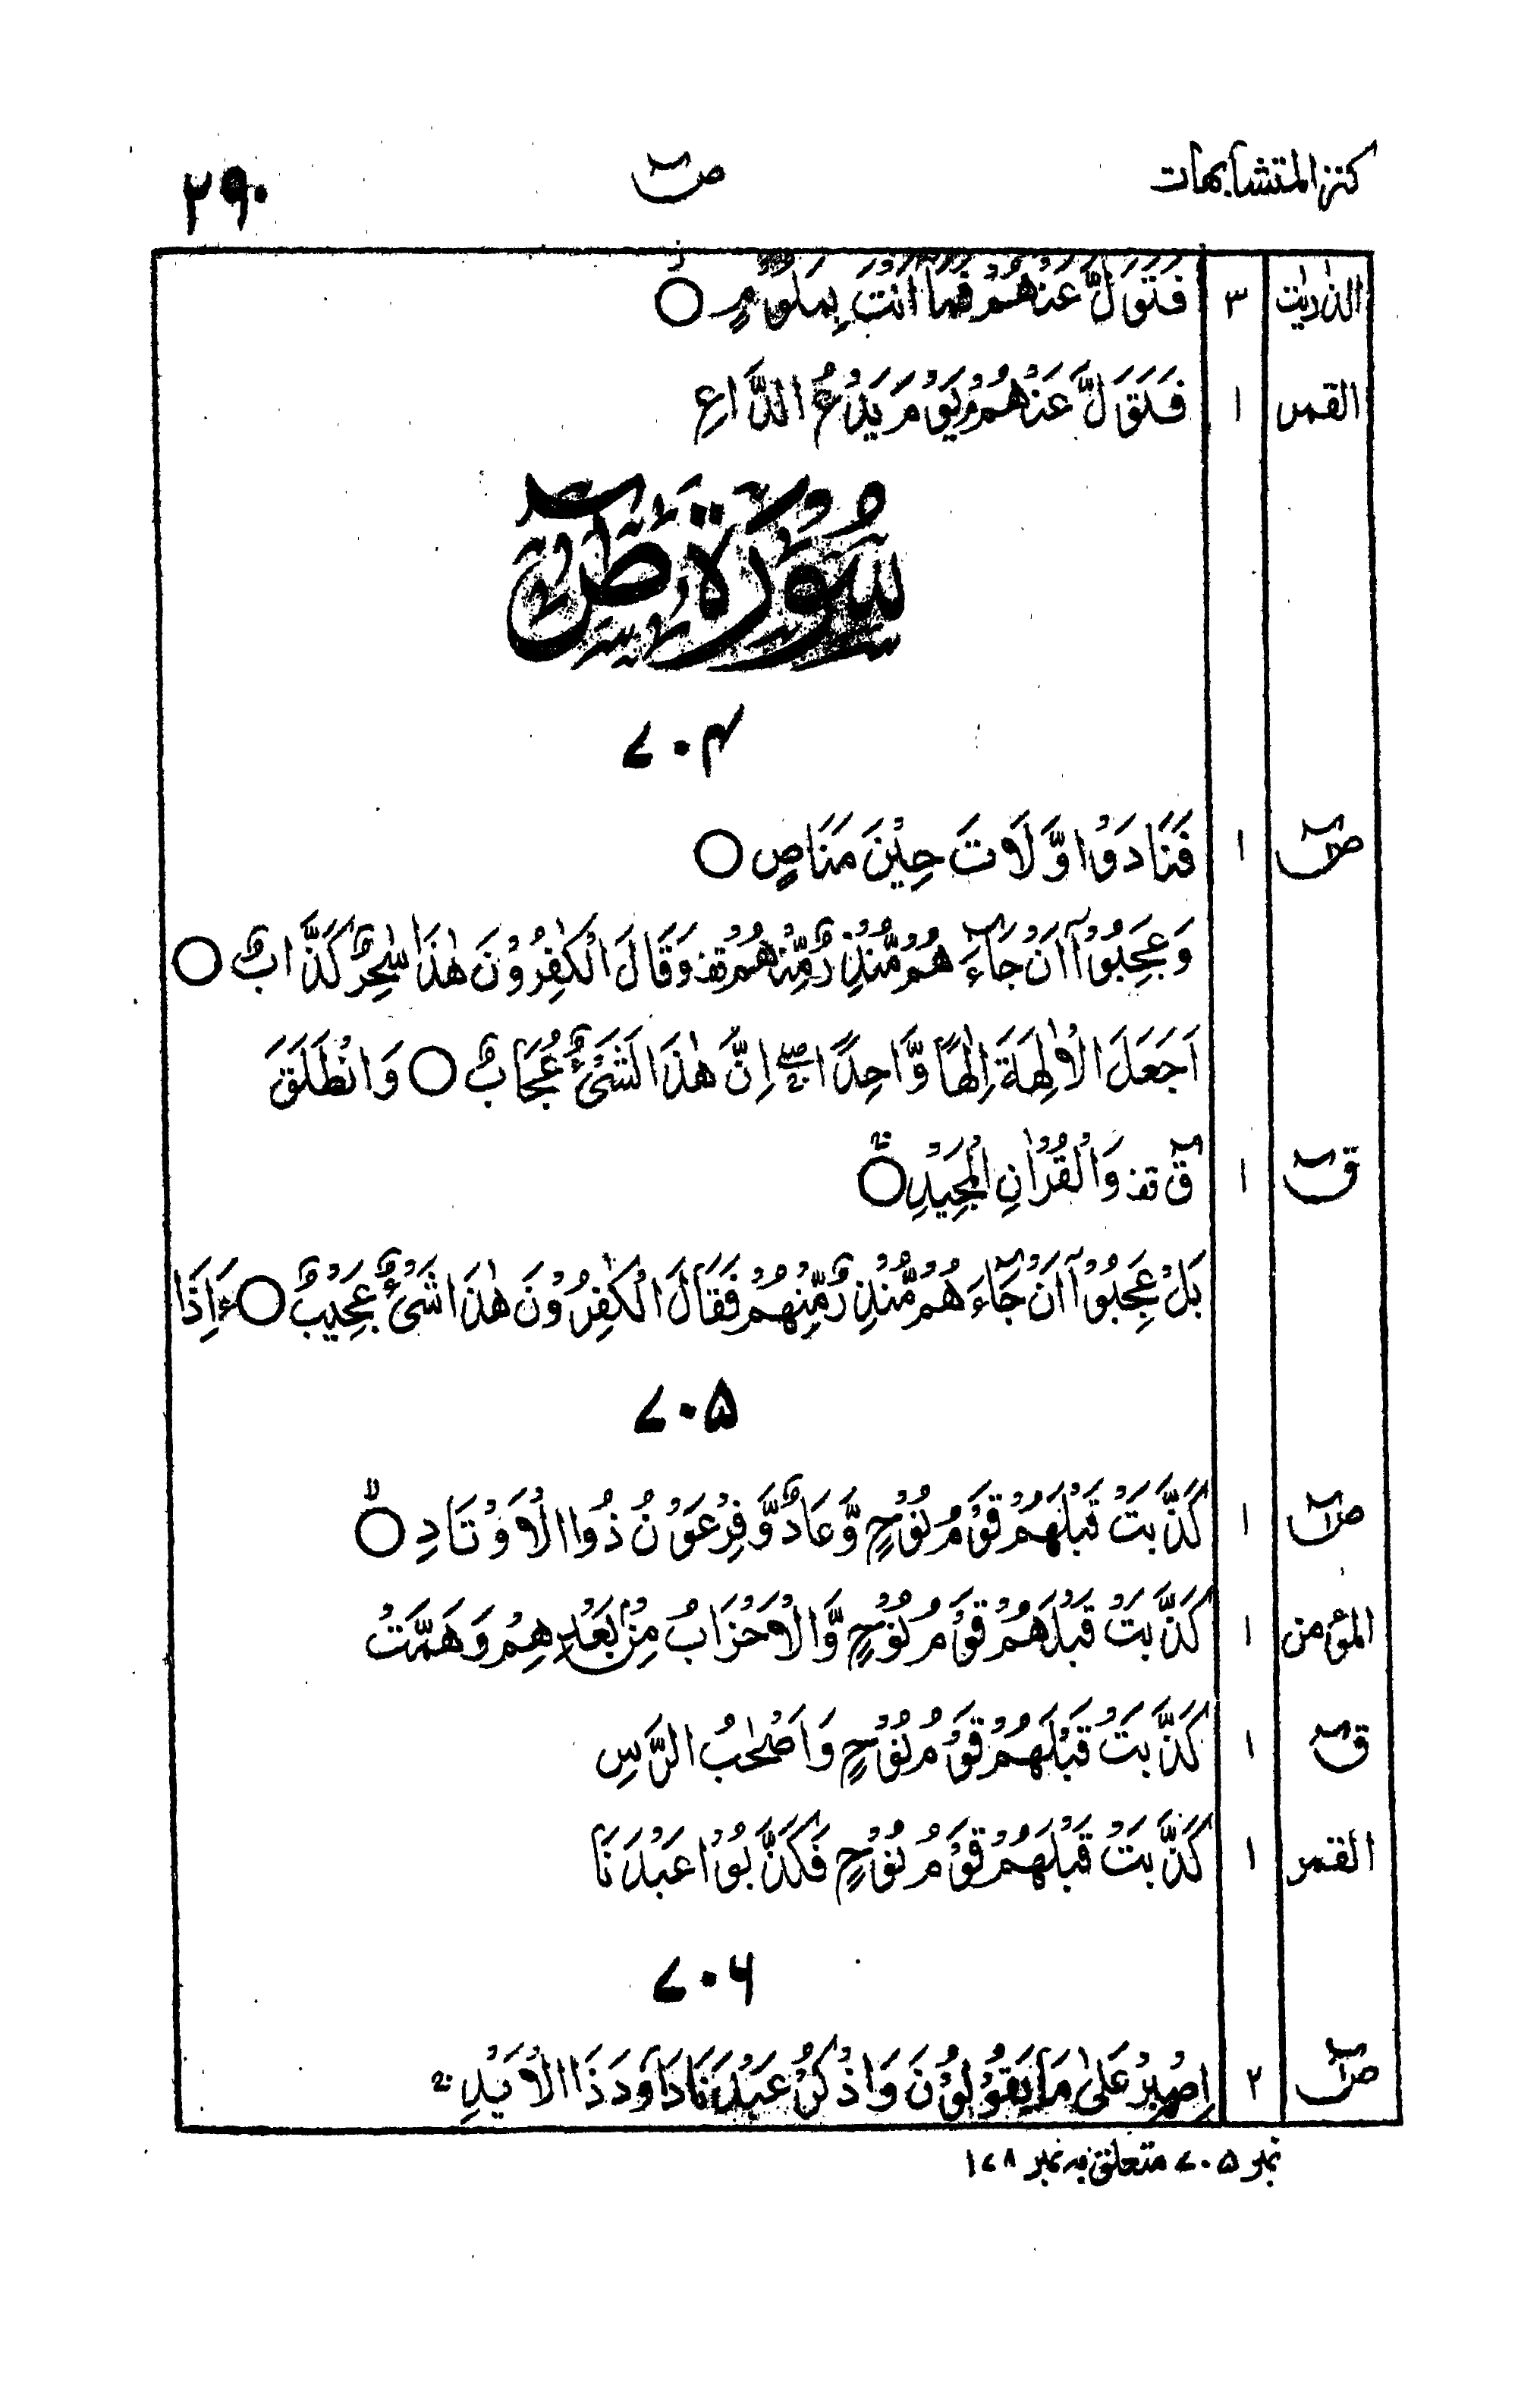 کنز المتشابهات ص ۲۹۰
الذریٰت ۳ فَتَوَلَّ عَنْهُمْ فَمَآ اَنْتَ بِمَلُوْمٍ ○
القمر ۱ فَتَوَلَّ عَنْهُمْ یَوْمَ یَدْعُ الدَّاعِ
سُوْرَةُ صٓ
۷۰۴
صٓ ۱ فَنَادَوْا وَّلَاتَ حِیْنَ مَنَاصٍ ○
وَعَجِبُوْٓا اَنْ جَآءَهُمْ مُّنْذِرٌ مِّنْهُمْ ز وَقَالَ الْکٰفِرُوْنَ هٰذَا سٰحِرٌ کَذَّابٌ ○
اَجَعَلَ الْاٰلِهَةَ اِلٰهًا وَّاحِدًا ۖ اِنَّ هٰذَا لَشَیْءٌ عُجَابٌ ○ وَانْطَلَقَ
قٓ ۱ قٓ قف وَالْقُرْاٰنِ الْمَجِیْدِ ○
بَلْ عَجِبُوْٓا اَنْ جَآءَهُمْ مُّنْذِرٌ مِّنْهُمْ فَقَالَ الْکٰفِرُوْنَ هٰذَا شَیْءٌ عَجِیْبٌ ○ ءَاِذَا
۷۰۵
صٓ ۱ کَذَّبَتْ قَبْلَهُمْ قَوْمُ نُوْحٍ وَّعَادٌ وَّفِرْعَوْنُ ذُوا الْاَوْتَادِ ○
المؤمن ۱ کَذَّبَتْ قَبْلَهُمْ قَوْمُ نُوْحٍ وَّالْاَحْزَابُ مِنْۢ بَعْدِهِمْ وَهَمَّتْ
قٓ ۱ کَذَّبَتْ قَبْلَهُمْ قَوْمُ نُوْحٍ وَاَصْحٰبُ الرَّسِّ
القمر ۱ کَذَّبَتْ قَبْلَهُمْ قَوْمُ نُوْحٍ فَکَذَّبُوْا عَبْدَنَا
۷۰۶
صٓ ۲ اِصْبِرْ عَلٰی مَا یَقُوْلُوْنَ وَاذْکُرْ عَبْدَنَا دَاوٗدَ ذَا الْاَیْدِ ج
نمبر ۷۰۵ متعلق بہ نمبر ۱۷۸